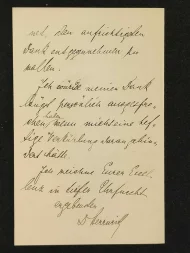 mit, den aufrichtigsten
Dank entgegennehmen zu
wollen.
Ich würde meinen Dank
längst persönlich ausgespro-
chen haben, wenn nicht eine hef-
tige Verkühlung daran gehin-
dert hätte.
Ich zeichne Eurer Excel-
lenz in tiefster Ehrfurcht
ergebenster